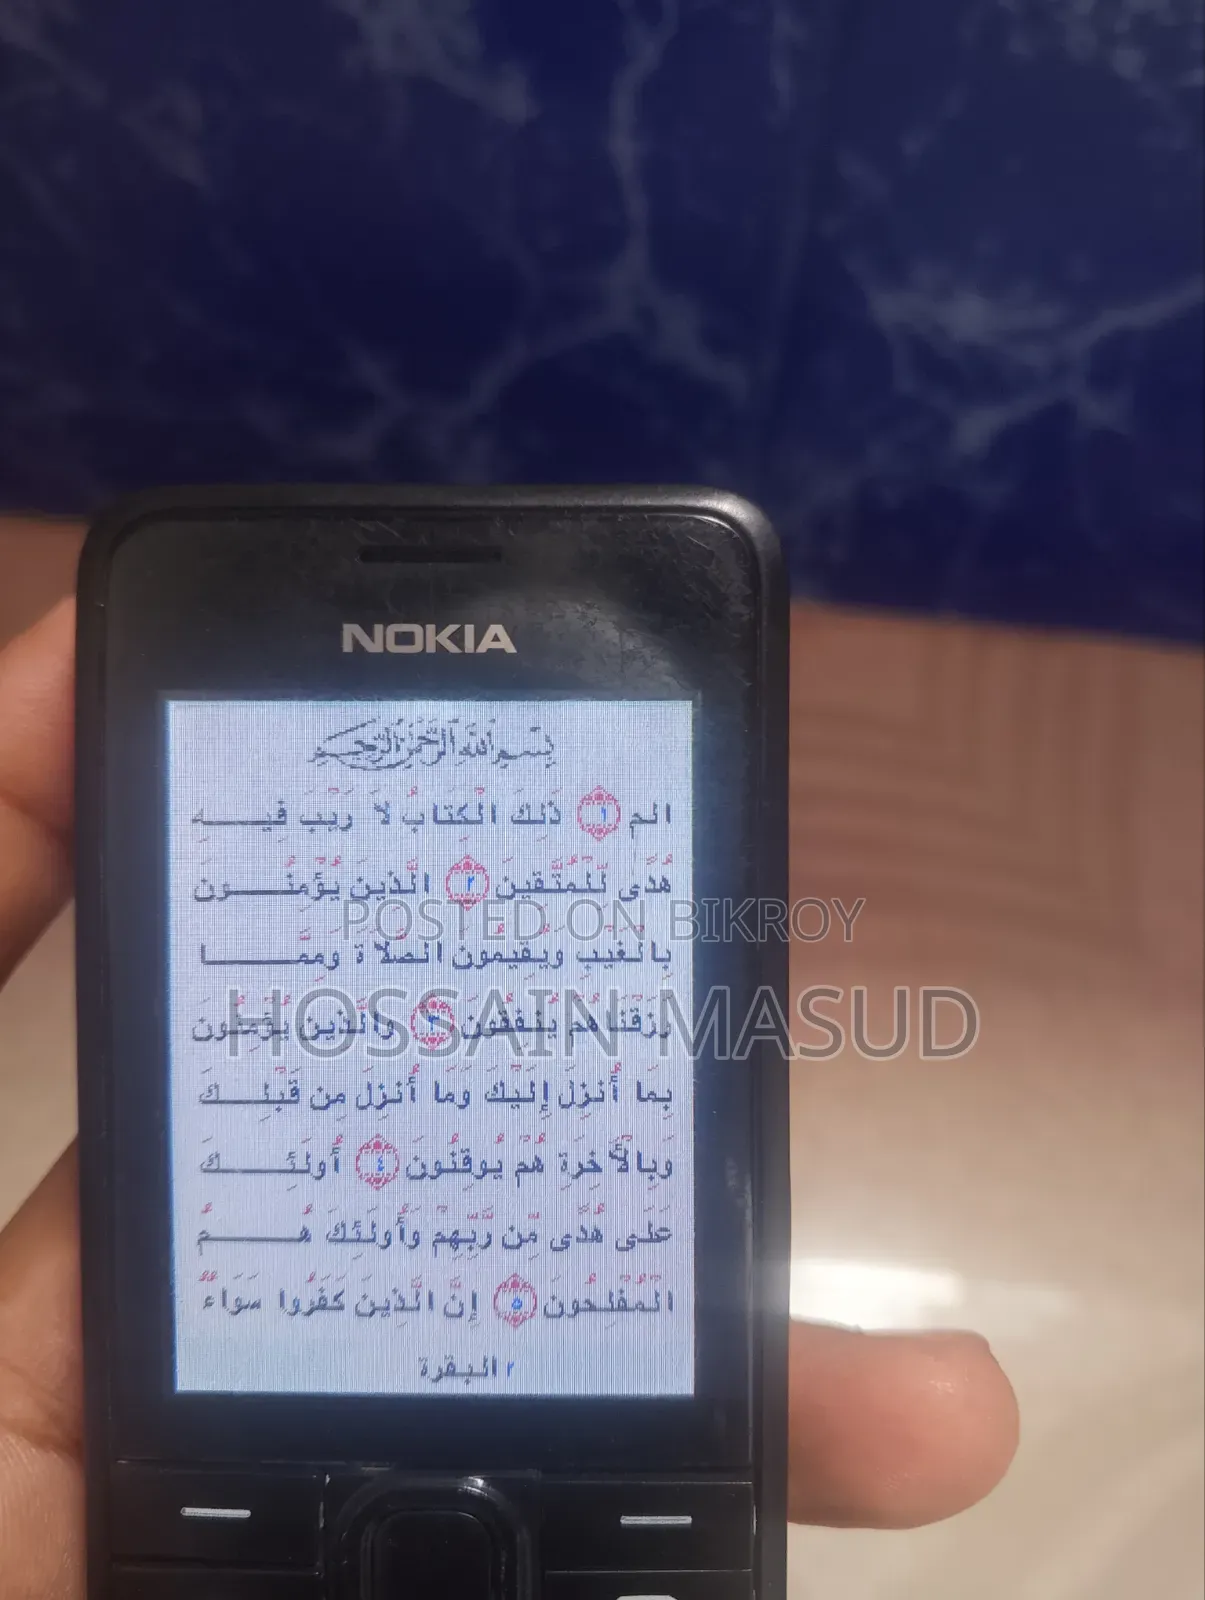 NOKIA
بِسْمِ اللَّهِ الرَّحْمَنِ الرَّحِيمِ
الم ١ ذَلِكَ الْكِتَابُ لَا رَيْبَ فِيـــهِ
هُدًى لِّلْمُتَّقِينَ ٢ الَّذِينَ يُؤْمِنُـــونَ
POSTED ON BIKROY
بِالْغَيْبِ وَيُقِيمُونَ الصَّلَاةَ وَمِمَّـــا
HOSSAIN MASUD
رَزَقْنَاهُمْ يُنفِقُونَ ٣ وَالَّذِينَ يُؤْمِنُونَ
بِمَا أُنزِلَ إِلَيْكَ وَمَا أُنزِلَ مِن قَبْلِـــكَ
وَبِالْآخِرَةِ هُمْ يُوقِنُونَ ٤ أُولَئِـــكَ
عَلَى هُدًى مِّن رَّبِّهِمْ وَأُولَئِكَ هُـــمُ
الْمُفْلِحُونَ ٥ إِنَّ الَّذِينَ كَفَرُوا سَوَاءٌ
٢ البقرة